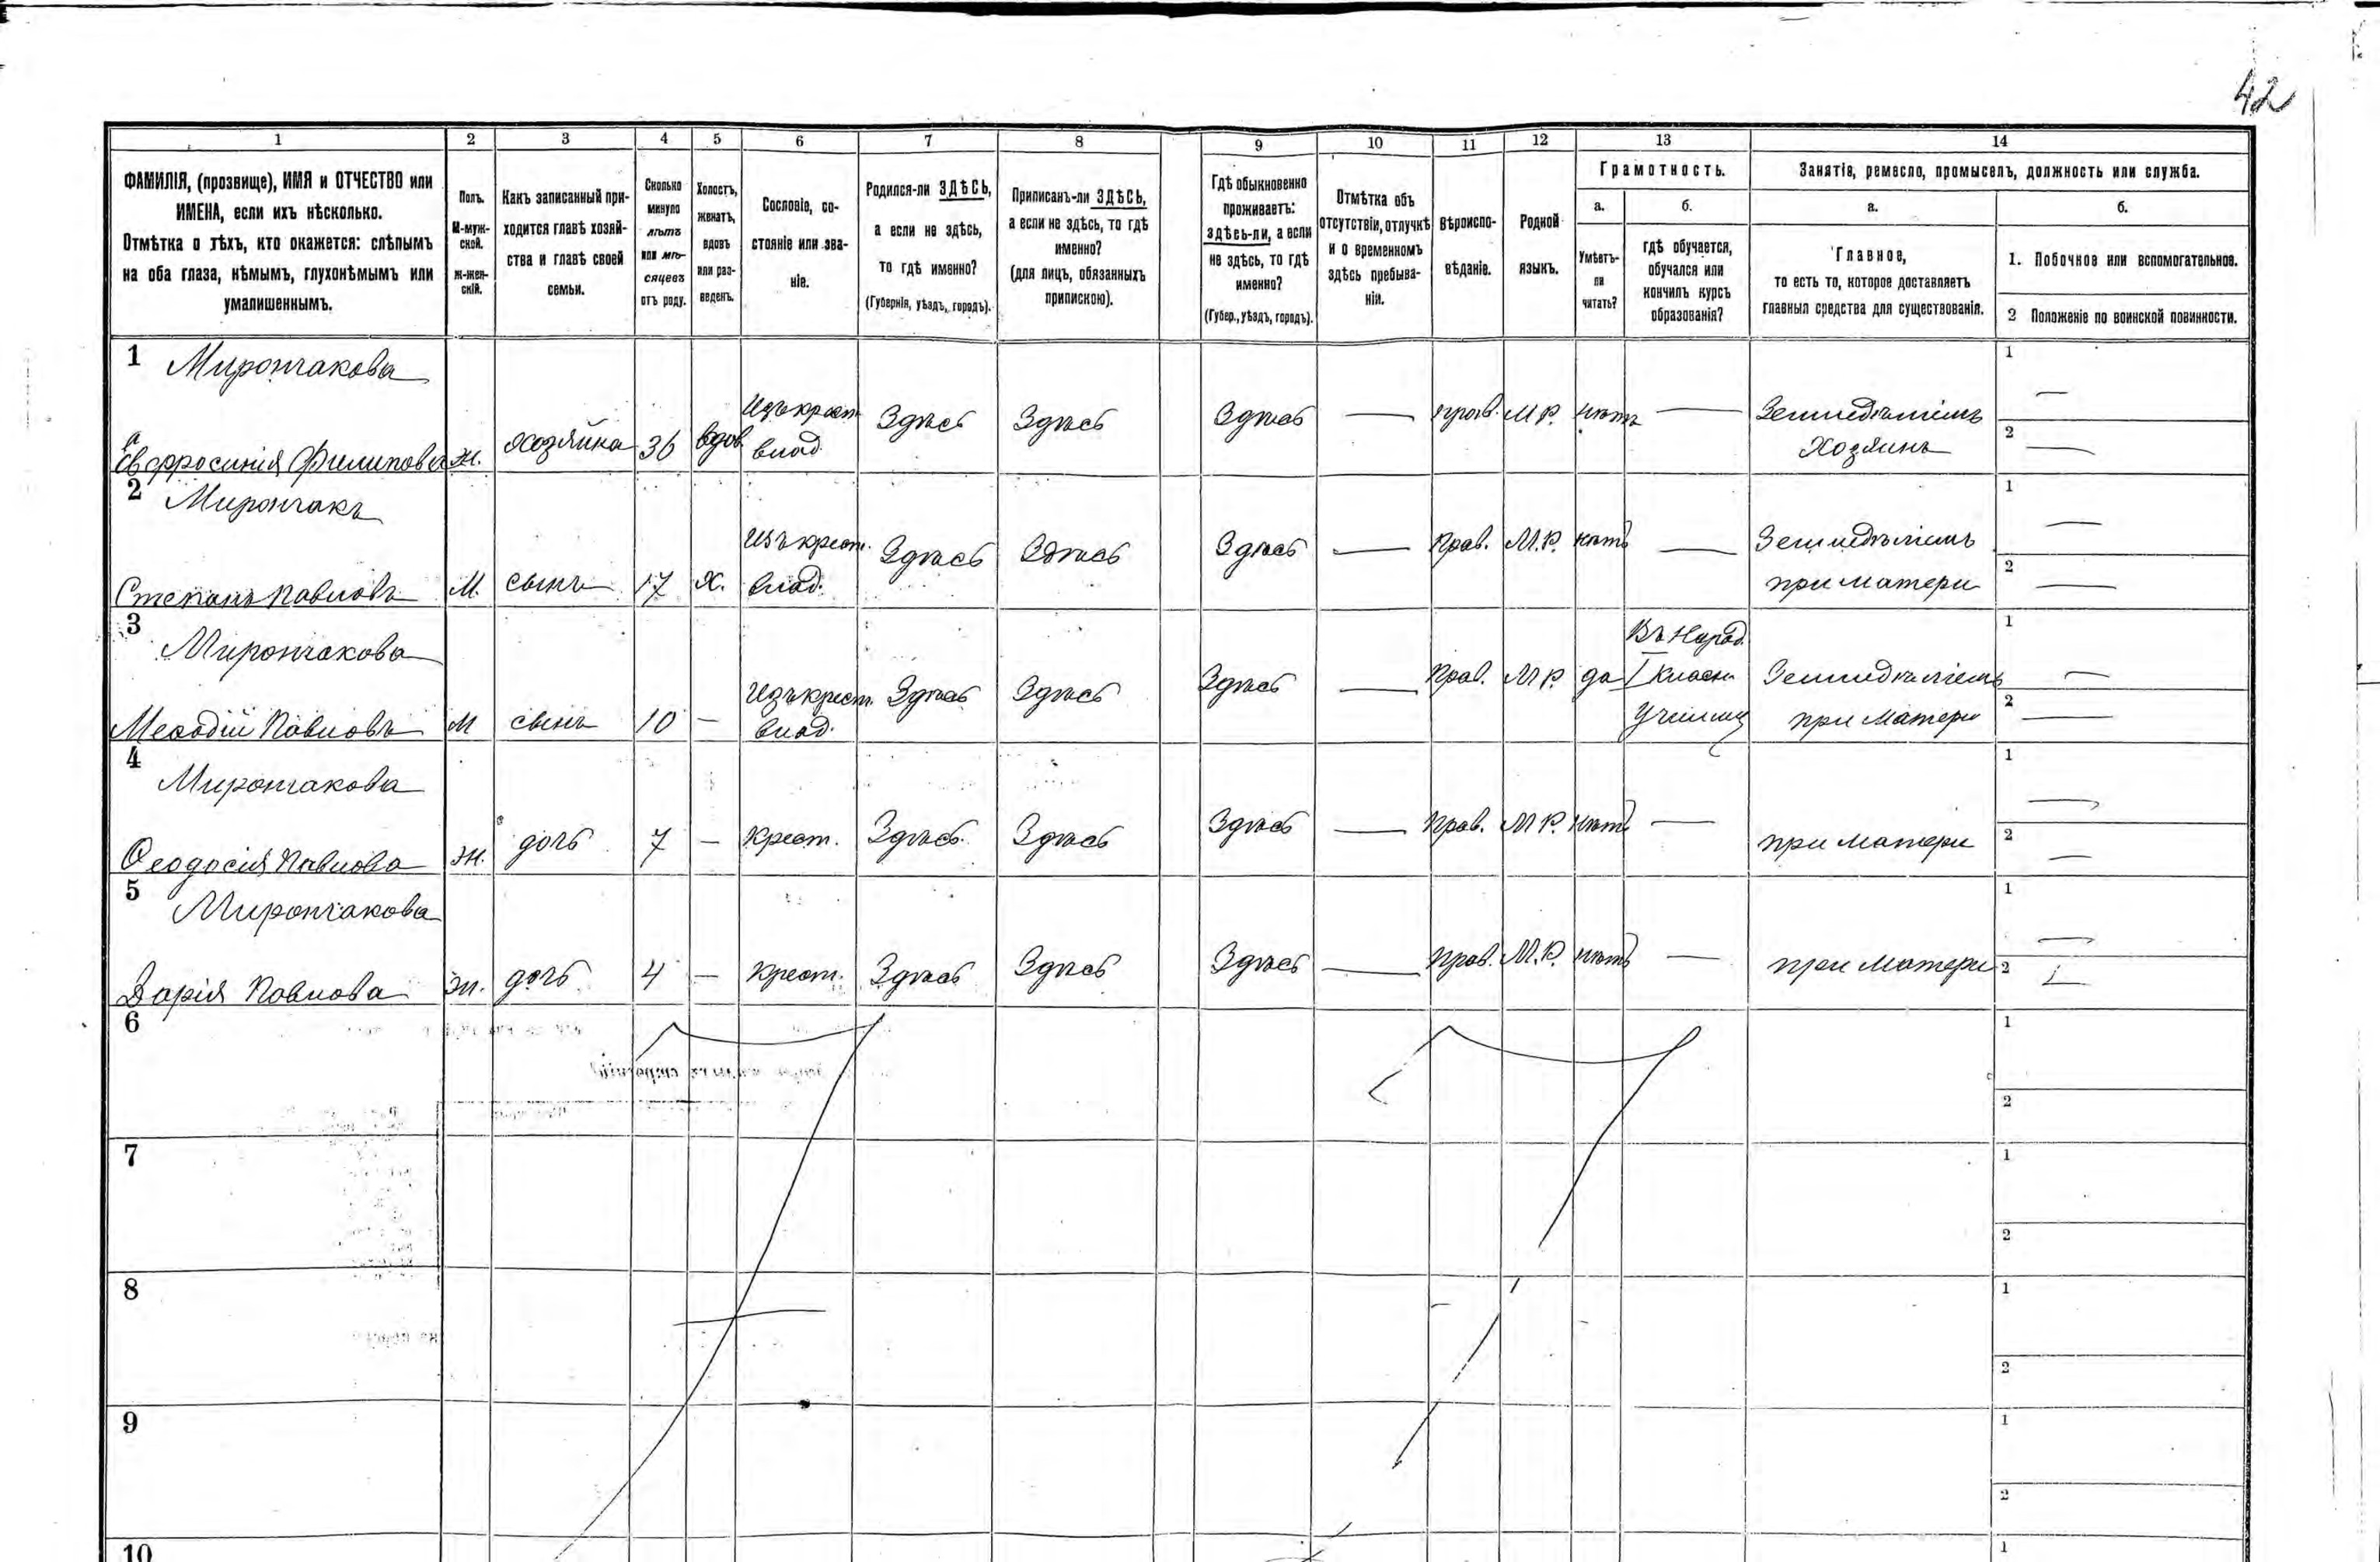 42
1 2 3 4 5 6 7 8 9 10 11 12 13 14
ФАМИЛІЯ, (прозвище), ИМЯ и ОТЧЕСТВО или
ИМЕНА, если ихъ нѣсколько.
Отмѣтка о тѣхъ, кто окажется: слѣпымъ
на оба глаза, нѣмымъ, глухонѣмымъ или
умалишеннымъ.
Полъ.
М-муж-
ской.
Ж-жен-
скій.
Какъ записанный при-
ходится главѣ хозяй-
ства и главѣ своей
семьи.
Сколько
минуло
лѣтъ
или мѣ-
сяцевъ
отъ роду.
Холостъ,
женатъ,
вдовъ
или раз-
веденъ.
Сословіе, со-
стояніе или зва-
ніе.
Родился-ли ЗДѢСЬ,
а если не здѣсь,
то гдѣ именно?
(Губернія, уѣздъ, городъ).
Приписанъ-ли ЗДѢСЬ,
а если не здѣсь, то гдѣ
именно?
(для лицъ, обязанныхъ
припискою).
Гдѣ обыкновенно
проживаетъ:
здѣсь-ли, а если
не здѣсь, то гдѣ
именно?
(Губер., уѣздъ, городъ).
Отмѣтка объ
отсутствіи, отлучкѣ
и о временномъ
здѣсь пребыва-
ніи.
Вѣроиспо-
вѣданіе.
Родной
языкъ.
Грамотность.
а.
Умѣетъ-
ли
читать?
б.
гдѣ обучается,
обучался или
кончилъ курсъ
образованія?
Занятіе, ремесло, промыселъ, должность или служба.
а.
Главное,
то есть то, которое доставляетъ
главныя средства для существованія.
б.
1. Побочное или вспомогательное.
2 Положеніе по воинской повинности.
1 Мирончакова
Евфросинія Филипова ж. хозяйка 36 вдов. Изъ крест. влад. Здѣсь Здѣсь Здѣсь — прав. М.Р. нѣтъ — Земледѣліемъ Хозяинъ 1 — 2 —
2 Мирончакъ
Степанъ Павловъ М. сынъ 17 Х. Изъ крест. влад. Здѣсь Здѣсь Здѣсь — Прав. М.Р. нѣтъ — Земледѣліемъ при матери 1 — 2 —
3 Мирончакова
Меѳодій Павловъ М сынъ 10 — Изъ крест. влад. Здѣсь Здѣсь Здѣсь — Прав. М.Р. да Въ Народ. I класн. Училищ Земледѣліемъ при матери 1 — 2 —
4 Мирончакова
Ѳеодосія Павлова ж. дочь 7 — крест. Здѣсь Здѣсь Здѣсь — Прав. М.Р. нѣтъ — при матери 1 — 2 —
5 Мирончакова
Дарія Павлова ж. дочь 4 — крест. Здѣсь Здѣсь Здѣсь — прав. М.Р. нѣтъ — при матери 1 — 2 —
6 1
2
7 1
2
8 1
2
9 1
2
10 1